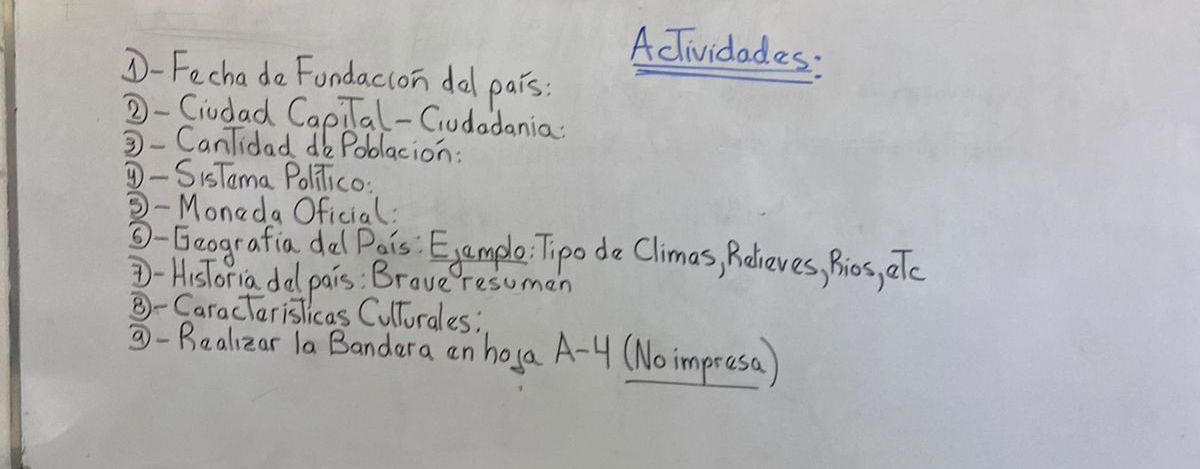 Actividades:
1)-Fecha de Fundación del país:
2)-Ciudad Capital-Ciudadania:
3)-Cantidad de Población:
4)-Sistema Político:
5)-Moneda Oficial:
6)-Geografia del País: Ejemplo: Tipo de Climas, Relieves, Rios, etc
7)-Historia del país: Breve resumen
8)-Caracteristicas Culturales:
9)-Realizar la Bandera en hoja A-4 (No impresa)